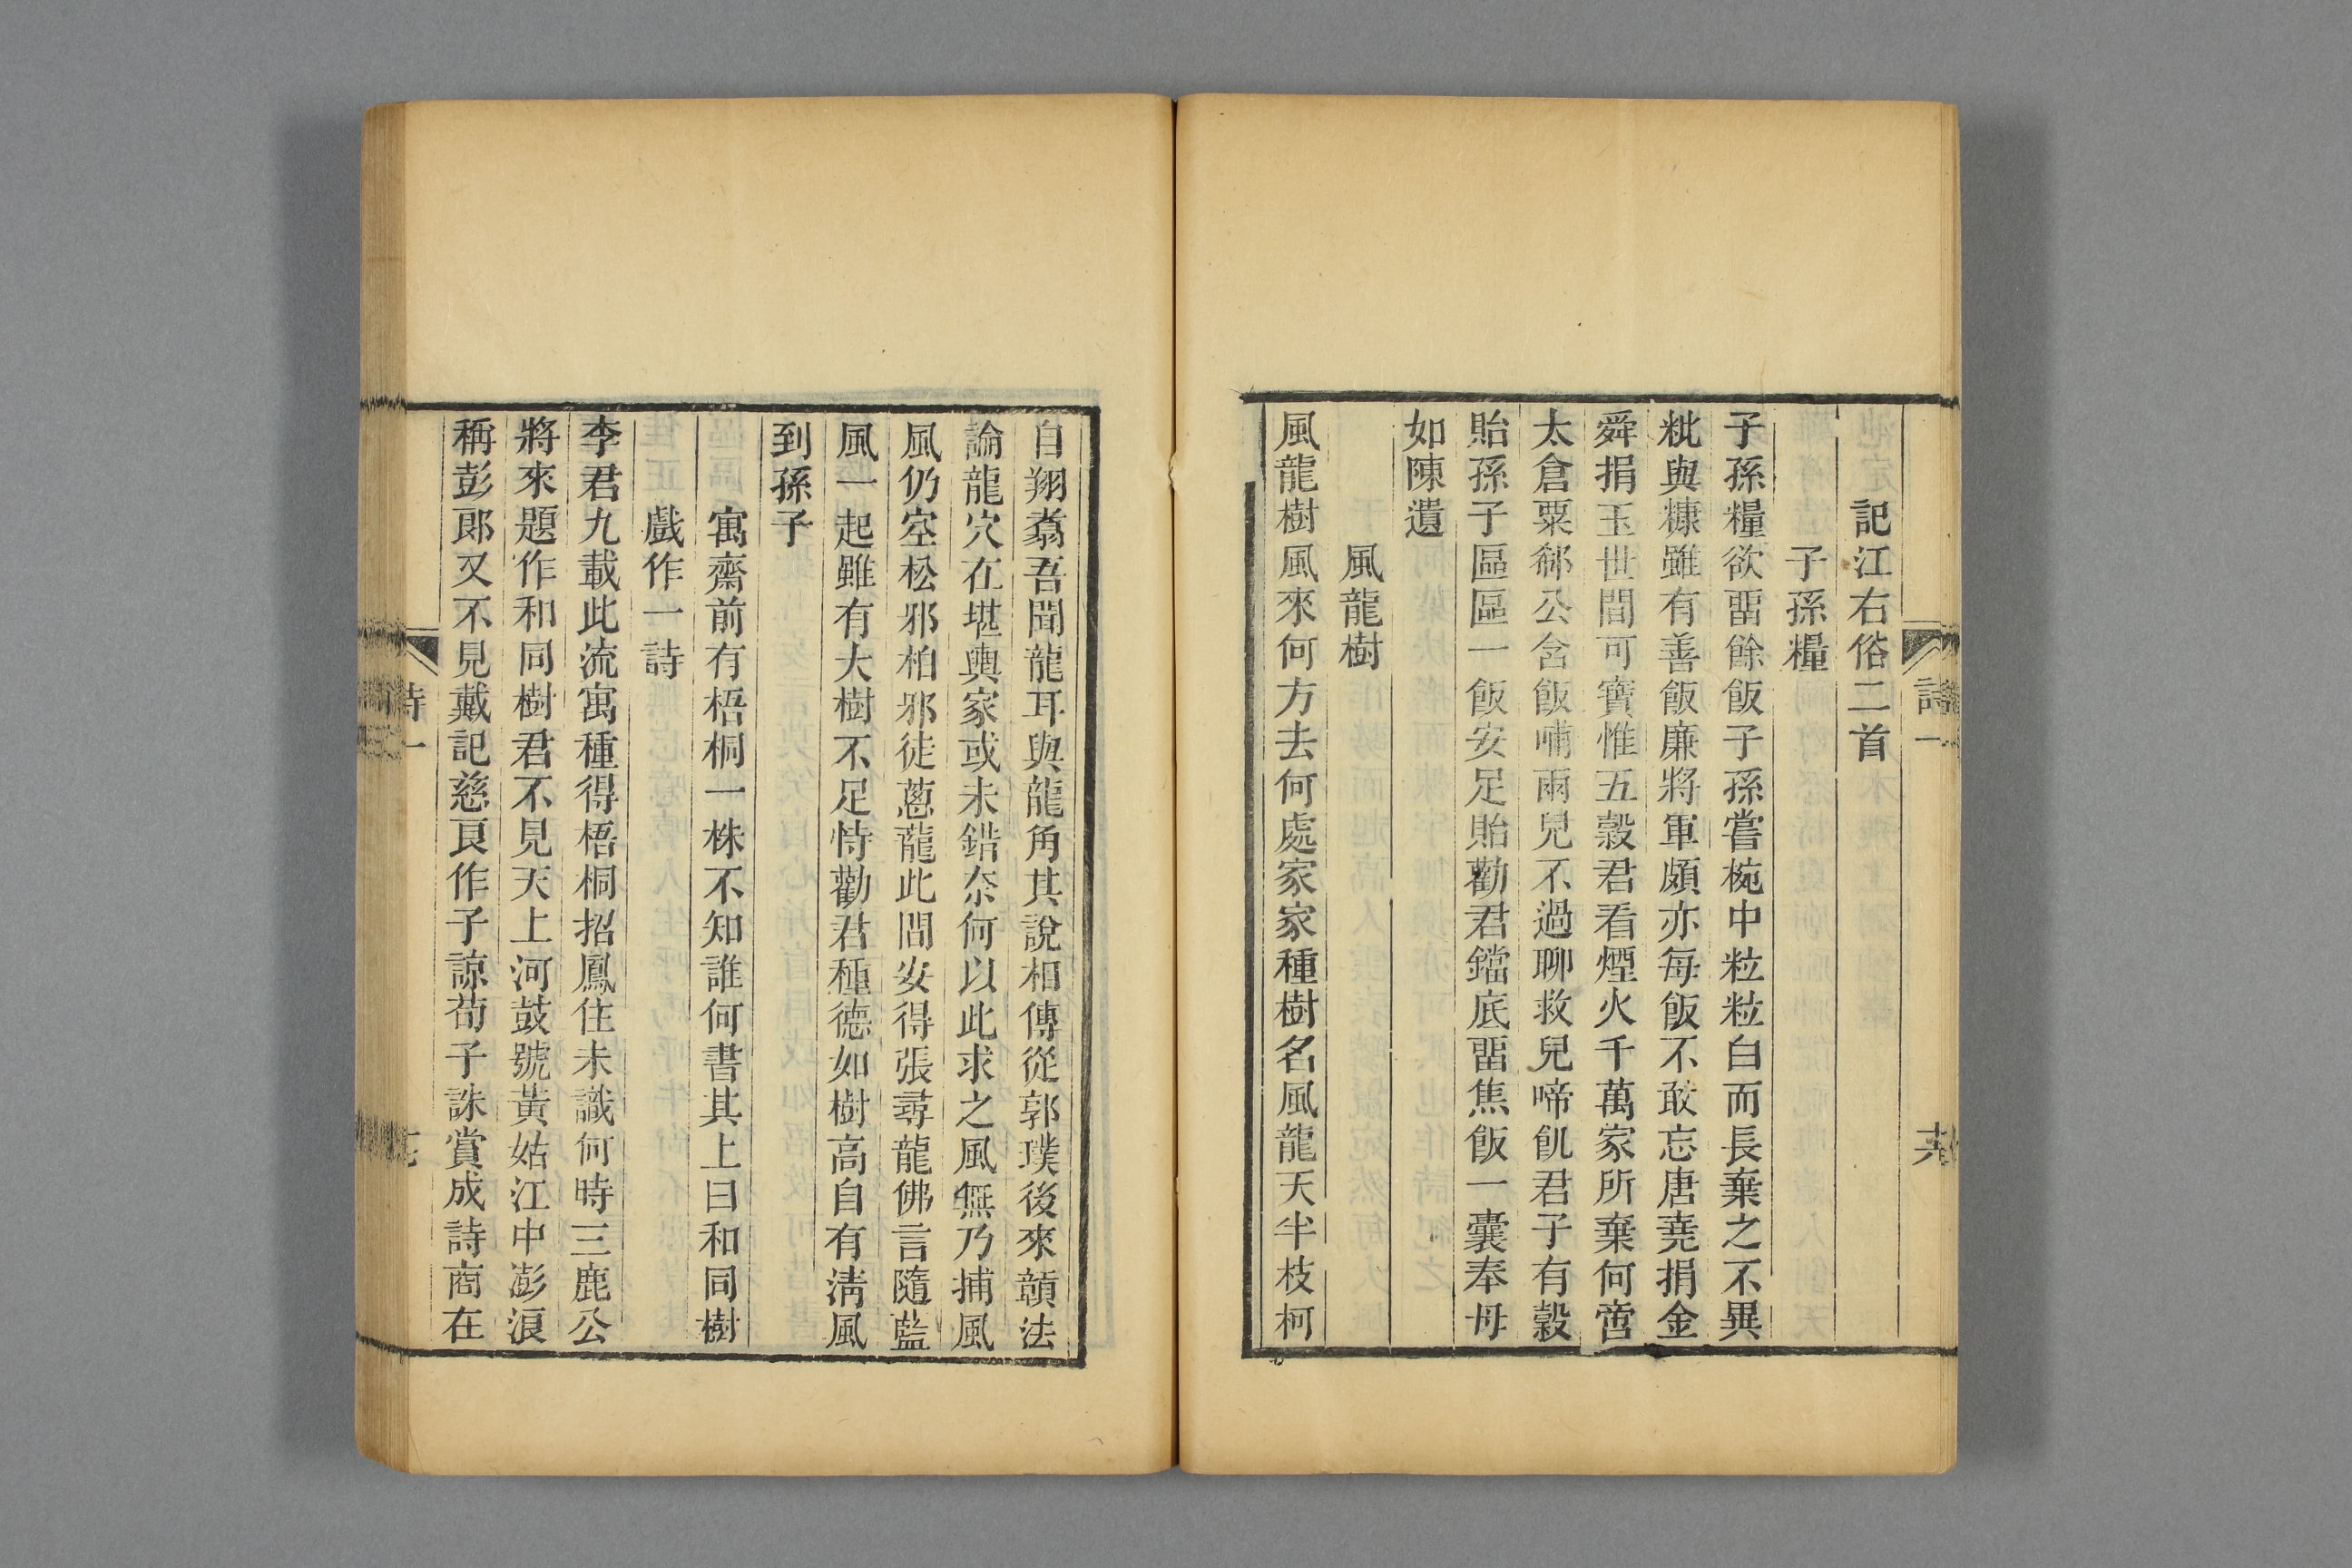 詩一
記江右俗二首
子孫糧
子孫糧欲畱餘飯子孫嘗椀中粒粒白而長棄之不異
粃與糠雖有善飯廉將軍頗亦每飯不敢忘唐堯捐金
舜捐玉世間可寶惟五穀君看煙火千萬家所棄何啻
太倉粟郗公含飯哺兩兒不過聊救兒啼飢君子有穀
貽孫子區區一飯安足貽勸君鐺底畱焦飯一囊奉母
如陳遺
風龍樹
風龍樹風來何方去何處家家種樹名風龍天半枝柯
自翔翥吾聞龍耳與龍角其說相傳從郭璞後來賴法
論龍穴在堪輿家或未錯奈何以此求之風無乃捕風
風仍空松邪柏邪徒蔥蘢此間安得張尋龍佛言隨藍
風一起雖有大樹不足恃勸君種德如樹高自有淸風
到孫子
寓齋前有梧桐一株不知誰何書其上曰和同樹
戲作一詩
李君九載此流寓種得梧桐招鳳住未識何時三鹿公
將來題作和同樹君不見天上河鼓號黃姑江中澎浪
稱彭郞又不見戴記慈良作子諒荀子誅賞成詩商在
詩一